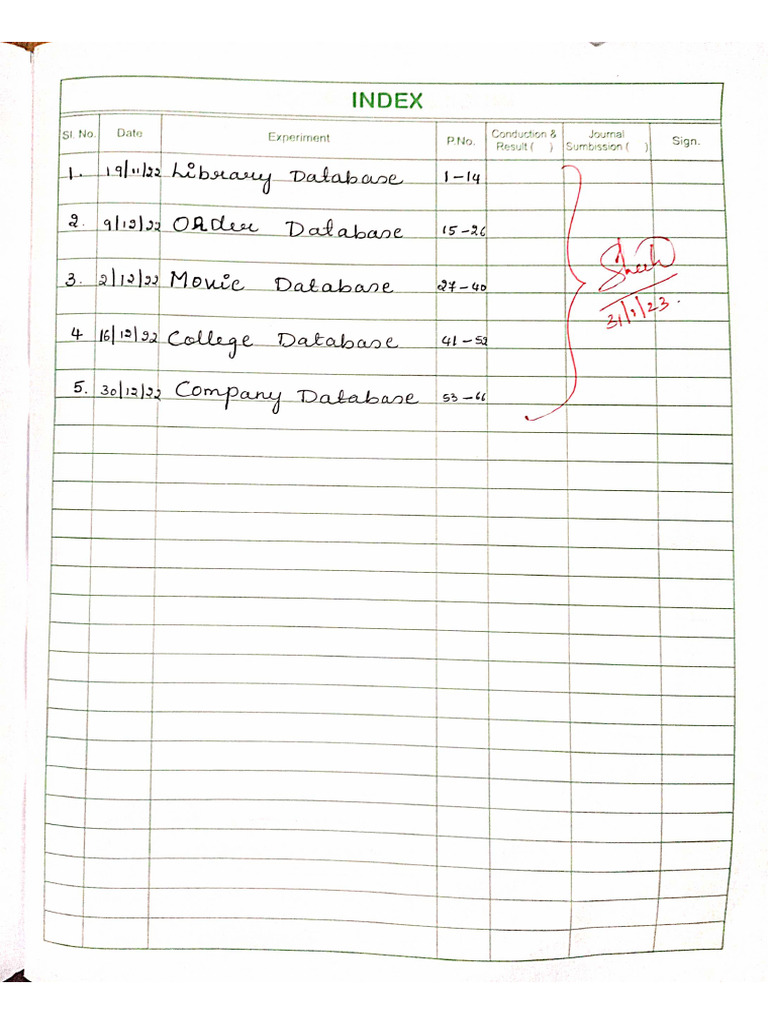 INDEX
Sl. No. Date Experiment P.No. Conduction & Result ( ) Journal Sumbission ( ) Sign.
1. 19/11/22 Library Database 1-14
2. 9/12/22 Order Database 15-26
3. 2/12/22 Movie Database 27-40
4 16/12/22 College Database 41-52
5. 30/12/22 Company Database 53-66
31/1/23.